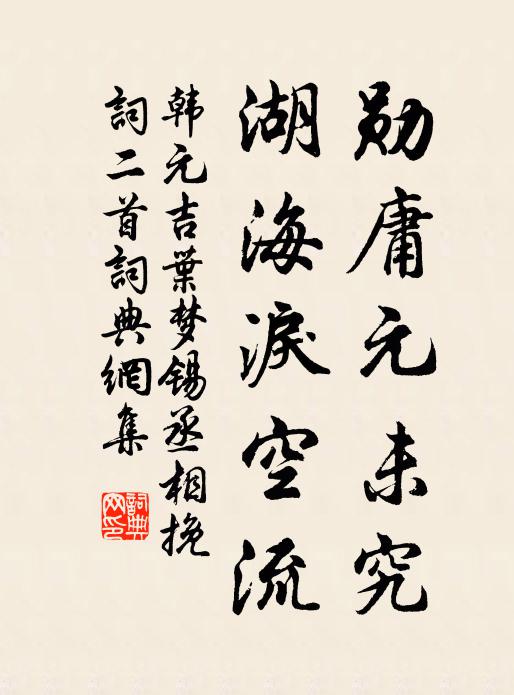 勋庸元未究
湖海淚空流
韩元吉葉梦锡丞相挽
詞二首詞典網集
詞典网印